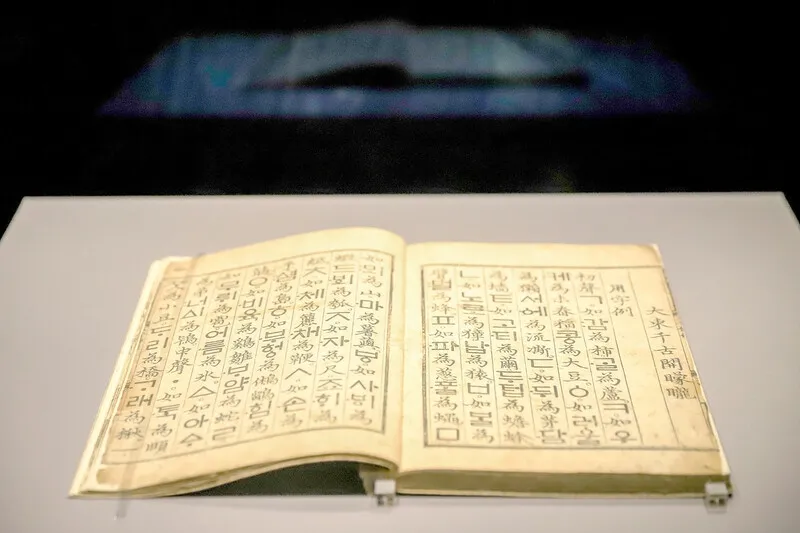 大東千古開朦朧
用字例
初聲ㄱ。如감爲柿。ᄀᆞᆯ爲蘆。ㅋ。如우
케爲未舂稻。콩爲大豆。ㆁ。如러울
爲獺。서에爲流凘。ㄷ。如뒤爲茅。담
爲墻。ㅌ。如고티爲繭。두텁爲蟾蜍。
ㄴ。如노로爲獐。납爲猿。ㅂ。如ᄇᆞᆯ爲
臂。벌爲蜂。ㅍ。如파爲葱。ᄑᆞᆯ爲蠅。ㅁ。
如뫼爲山。마爲薯藇。ㅸ。如사ᄫᅵ爲
蝦。드ᄫᅴ爲瓠。ㅈ。如자爲尺。죠ᄒᆡ爲
紙。ㅊ。如체爲簏。채爲鞭。ㅅ。如손爲
手。셤爲島。ㅎ。如부헝爲鵂鶹。힘爲
筋。ㅇ。如비육爲鷄雛。ᄇᆞ얌爲蛇。ㄹ。
如무뤼爲雹。어름爲氷。ㅿ。如아ᅀᆞ
爲弟。너ᅀᅵ爲鴇。中聲ㆍ。如ᄐᆞᆨ爲頤。
ᄑᆞᆺ爲小豆。ᄃᆞ리爲橋。ᄀᆞ래爲楸。